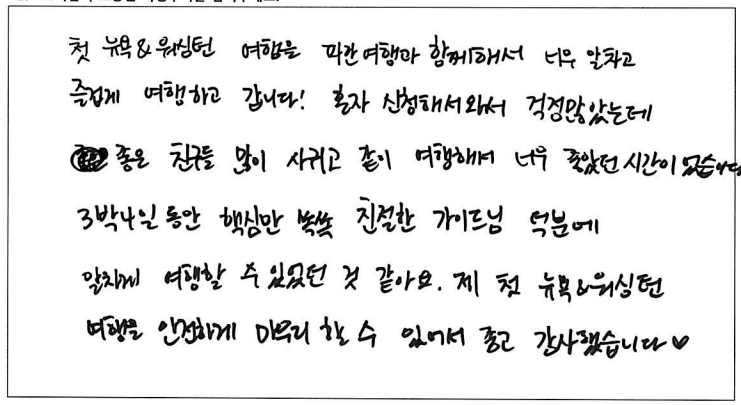 첫 뉴욕&워싱턴 여행을 파란여행과 함께해서 너무 알차고
즐겁게 여행하고 갑니다! 혼자 신청해서와서 걱정많았는데
좋은 친구들 많이 사귀고 같이 여행해서 너무 좋았던 시간이었습니다
3박4일 동안 핵심만 쏙쏙 친절한 가이드님 덕분에
알차게 여행할 수 있었던 것 같아요. 제 첫 뉴욕&워싱턴
여행을 안전하게 마무리 할 수 있어서 좋고 감사했습니다♥